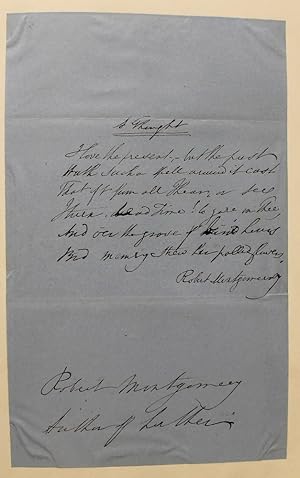 A Thought
I love the present, – but the past
Hath such a spell around it cast
That oft from all I hear, or see
I turn, dead Time! to gaze on thee
And o'er the grove of hours
And memory strew her pallid flowers.
Robert Montgomery
Robert Montgomery
Author of Luther